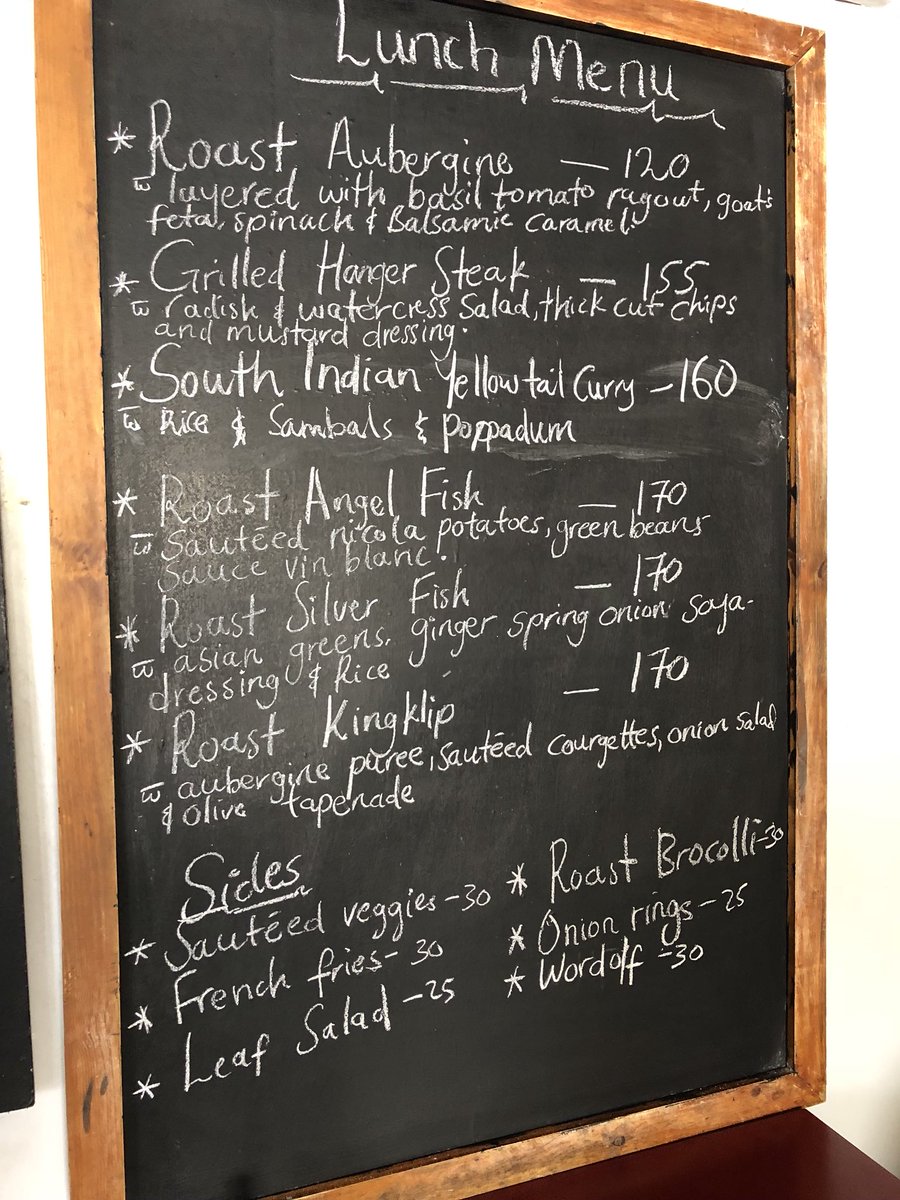 Lunch Menu
* Roast Aubergine — 120
w̄ layered with basil tomato ragout, goat's
feta, spinach & Balsamic caramel.
* Grilled Hanger Steak — 155
w̄ radish & watercress salad, thick cut chips
and mustard dressing.
* South Indian Yellowtail Curry — 160
w̄ Rice & Sambals & poppadum
* Roast Angel Fish — 170
w̄ Sautéed nicola potatoes, green beans
sauce vin blanc.
* Roast Silver Fish — 170
w̄ asian greens. ginger spring onion soya-
dressing & Rice
* Roast Kingklip — 170
w̄ aubergine puree, sautéed courgettes, onion salad
& olive tapenade
Sides
* Sautéed veggies - 30
* French fries - 30
* Leaf Salad - 25
* Roast Brocolli - 30
* Onion rings - 25
* Wordoff - 30